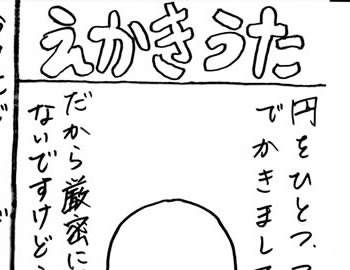 えかきうた
円をひとつ、
でかきまして
だから厳密に
ないですけど